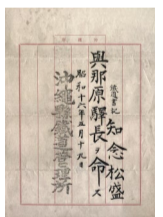 鐵道書記 知念松盛
與那原驛長ヲ命ス
昭和十八年五月十九日
沖繩縣鐵道管理所